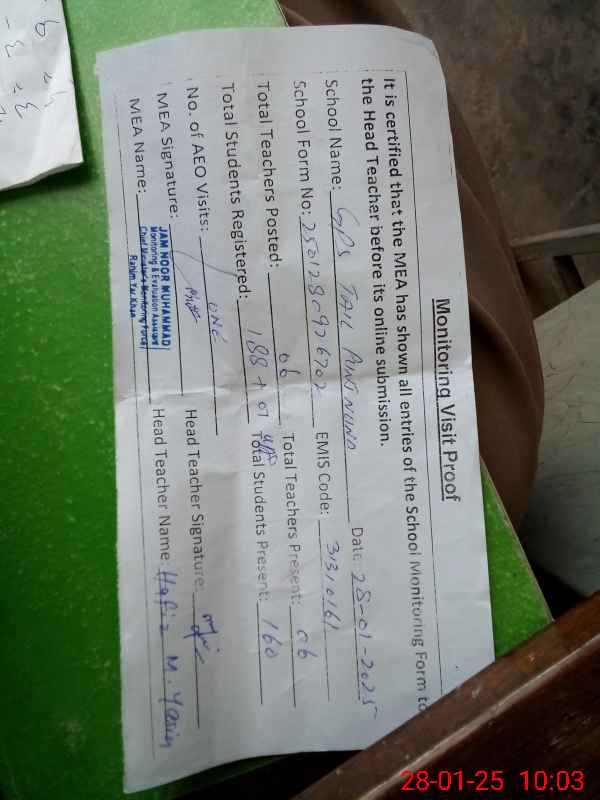 Monitoring Visit Proof
It is certified that the MEA has shown all entries of the School Monitoring Form to
the Head Teacher before its online submission.
School Name: GPS Date: 28-01-2025
School Form No: 25012809276702 EMIS Code: 31310161
Total Teachers Posted: 06 Total Teachers Present: 06
Total Students Registered: 188 + 01 Total Students Present: 160
No. of AEO Visits: ONE
MEA Signature: Head Teacher Signature:
MEA Name: JAM NOOR MUHAMMAD Head Teacher Name: Hafiz M. Yasin
Monitoring & Evaluation Assistant
Chief Minister's Monitoring Force
Rahim Yar Khan
28-01-25 10:03